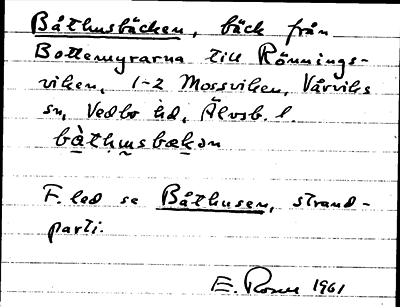 Båthusbäcken, bäck från
Bottemyrarna till Rönnings-
viken, 1-2 Mossviken, Vårviks
sn, Vedbo hd, Älvsb. l.
bàthusbækən
F. led se Båthusen, strand-
parti.
E. Rosen 1961